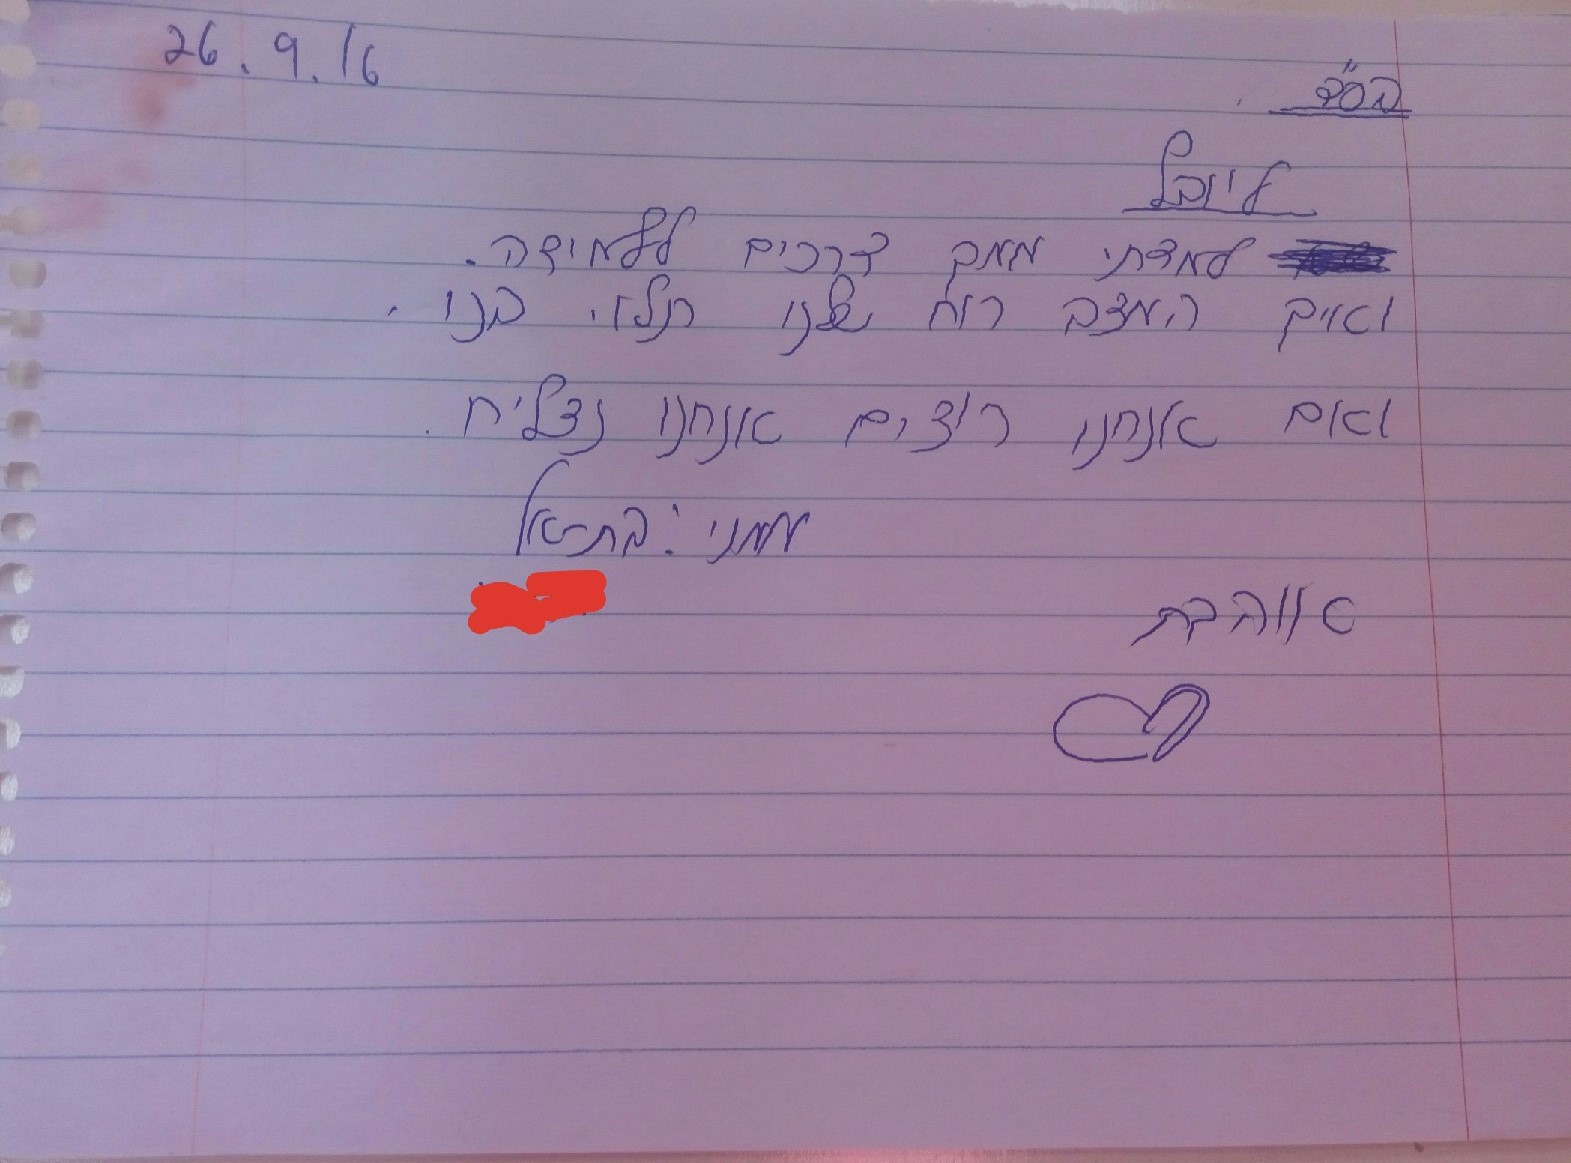 26.9.16
בס"ד
ליובל
למדתי ממך דרכים ללמידה.
ואיך המצב רוח שלנו תלוי בנו.
ואם אנחנו רוצים אנחנו נצליח.
ממני: בת-אל
אוהבת